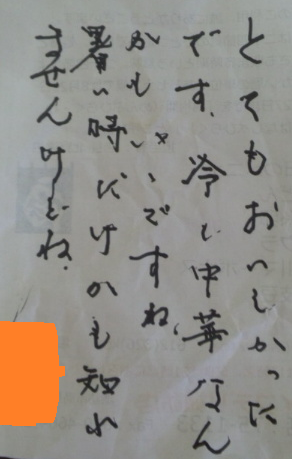 とてもおいしかった
です、冷し中華なん
かもいいですね、
暑い時だけかも知れ
ませんけどね、